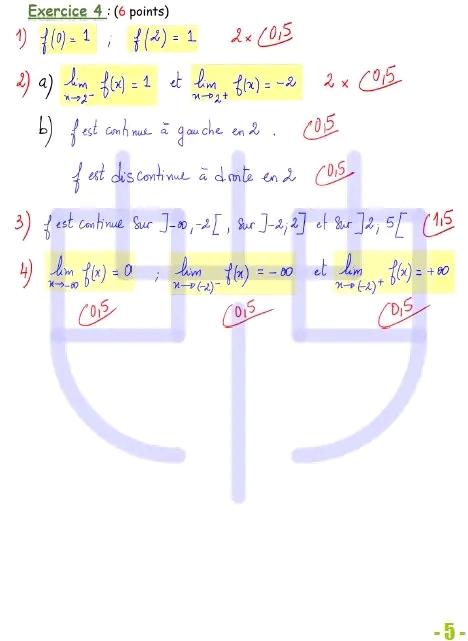 Exercice 4 : (6 points)
1) f(0) = 1 ; f(2) = 1 2 × 0,5
2) a) lim x→2⁻ f(x) = 1 et lim x→2⁺ f(x) = -2 2 × 0,5
b) f est continue à gauche en 2 . 0,5
f est discontinue à droite en 2 0,5
3) f est continue sur ]-∞, -2[ , sur ]-2; 2] et sur ]2, 5[ 1,5
4) lim x→-∞ f(x) = 0 ; lim x→(-2)⁻ f(x) = -∞ et lim x→(-2)⁺ f(x) = +∞
0,5 0,5 0,5
- 5 -